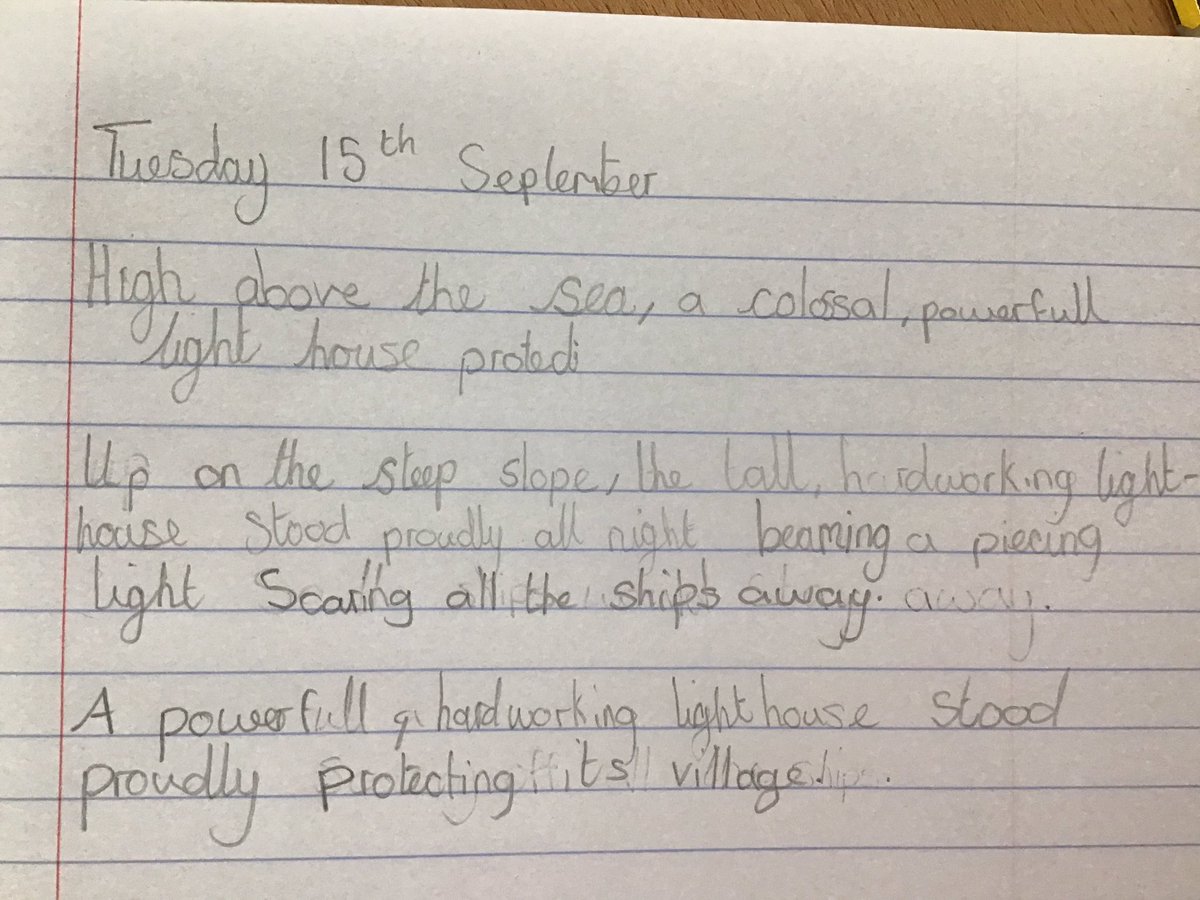 Tuesday 15th September
High above the sea, a colossal, powerfull
light house protedi
Up on the steep slope, the tall, hardworking light-
house stood proudly all night beaming a piecing
light Scaring all the ships away. away.
A powerfull & hardworking lighthouse stood
proudly protecting its village.